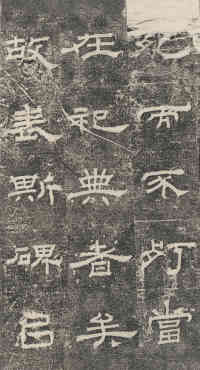 死而不㱙當
在祀典者矣
故表斯碑㠯